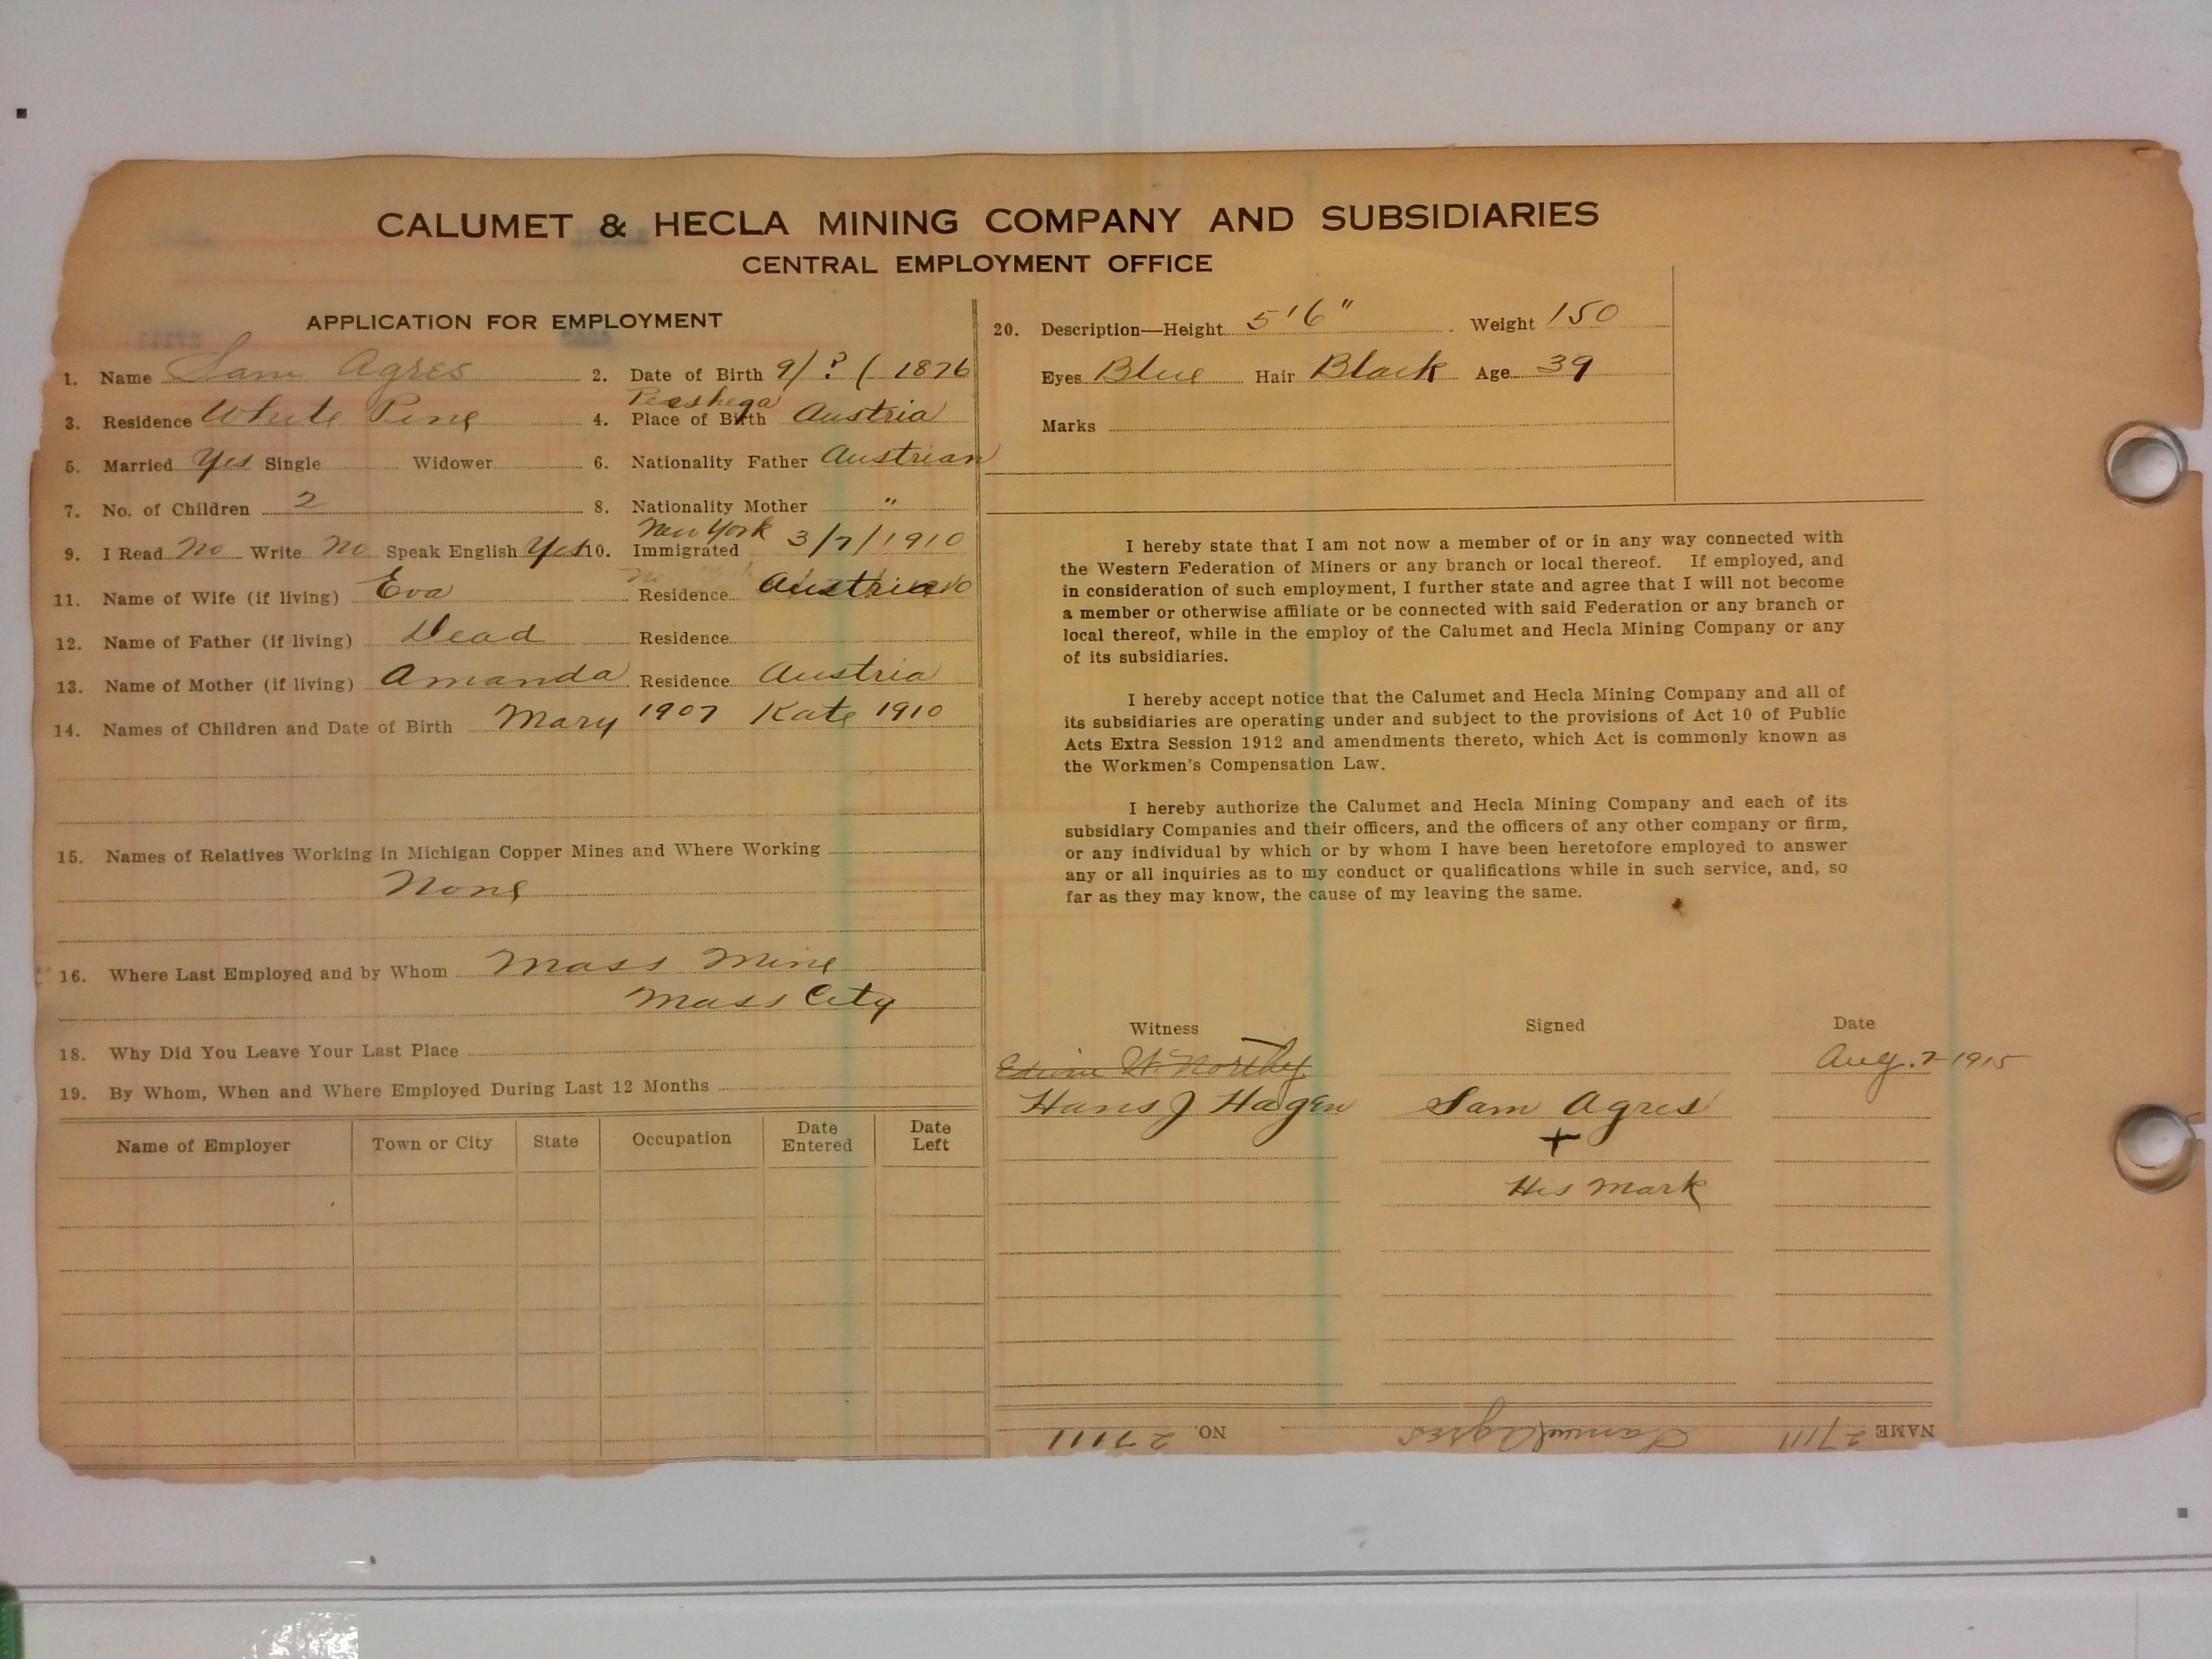 CALUMET & HECLA MINING COMPANY AND SUBSIDIARIES
CENTRAL EMPLOYMENT OFFICE
APPLICATION FOR EMPLOYMENT
1. Name Sam Agres 2. Date of Birth 9/ ? / 1876
3. Residence White Pine 4. Place of Birth Austria
5. Married Yes Single Widower 6. Nationality Father Austrian
7. No. of Children 2 8. Nationality Mother "
New York
9. I Read No Write No Speak English Yes 10. Immigrated 3/7/1910
11. Name of Wife (if living) Eva Residence Austria
12. Name of Father (if living) Dead Residence
13. Name of Mother (if living) Amanda Residence Austria
14. Names of Children and Date of Birth Mary 1907 Kate 1910
15. Names of Relatives Working in Michigan Copper Mines and Where Working
None
16. Where Last Employed and by Whom Mass Mine
Mass City
18. Why Did You Leave Your Last Place
19. By Whom, When and Where Employed During Last 12 Months
Name of Employer Town or City State Occupation Date Entered Date Left
20. Description—Height 5'6" Weight 150
Eyes Blue Hair Black Age 39
Marks
I hereby state that I am not now a member of or in any way connected with
the Western Federation of Miners or any branch or local thereof. If employed, and
in consideration of such employment, I further state and agree that I will not become
a member or otherwise affiliate or be connected with said Federation or any branch or
local thereof, while in the employ of the Calumet and Hecla Mining Company or any
of its subsidiaries.
I hereby accept notice that the Calumet and Hecla Mining Company and all of
its subsidiaries are operating under and subject to the provisions of Act 10 of Public
Acts Extra Session 1912 and amendments thereto, which Act is commonly known as
the Workmen's Compensation Law.
I hereby authorize the Calumet and Hecla Mining Company and each of its
subsidiary Companies and their officers, and the officers of any other company or firm,
or any individual by which or by whom I have been heretofore employed to answer
any or all inquiries as to my conduct or qualifications while in such service, and, so
far as they may know, the cause of my leaving the same.
Witness Signed Date
Edwin W. Northey Aug. 7 1915
Hans J Hagen Sam Agres
+
His Mark
NAME 27111 Samuel Agres NO. 27111